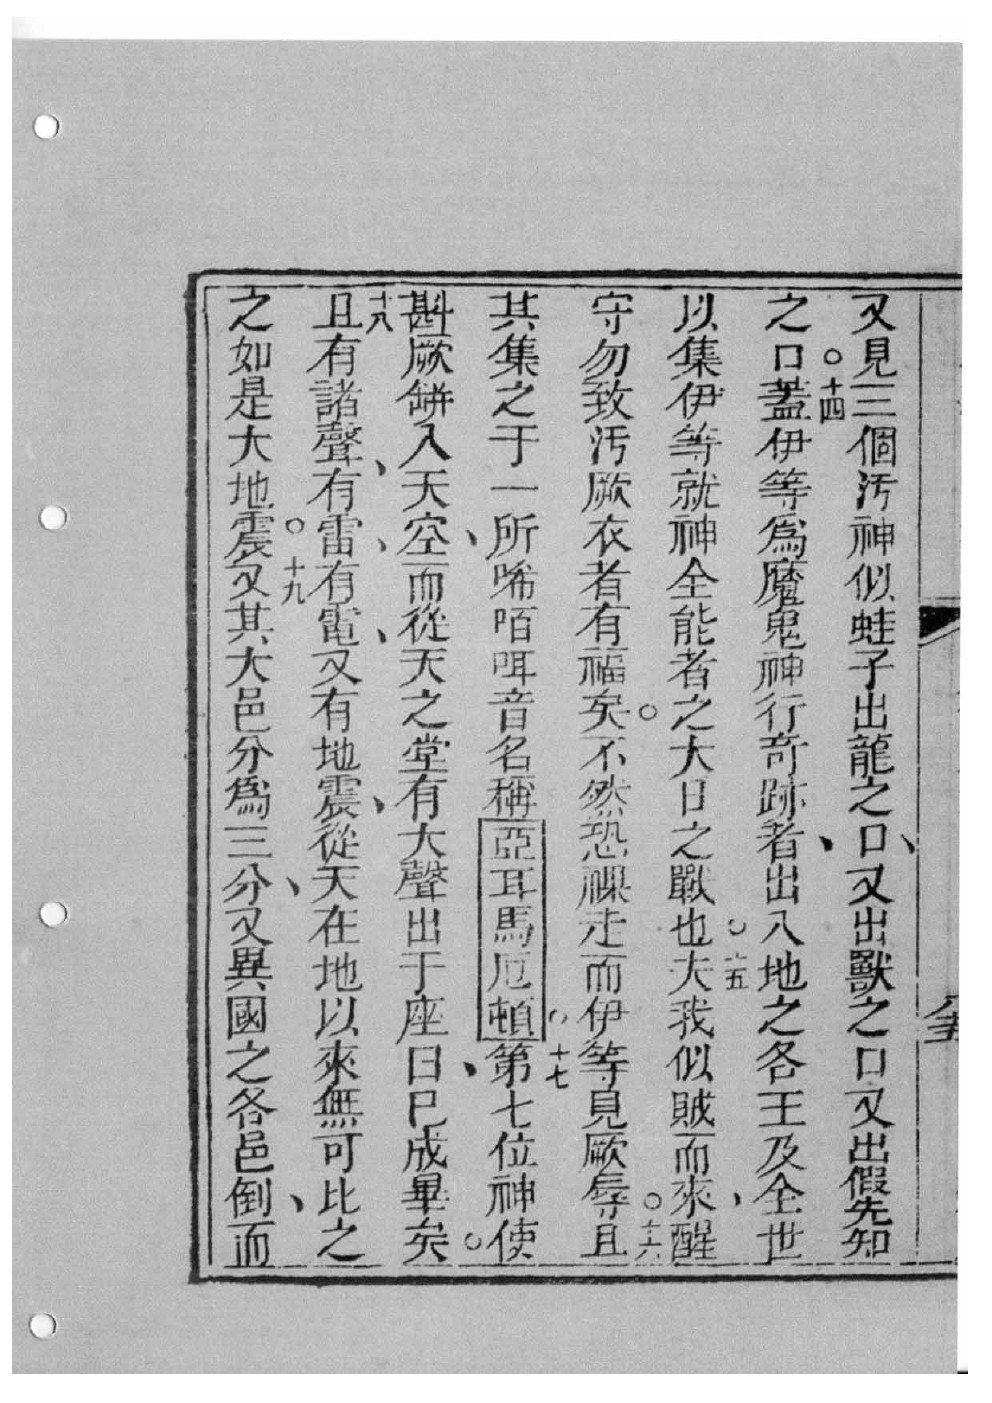 又見三個汚神似蛙子出龍之口、又出獸之口又出假先知
之口○十四蓋伊等為魔鬼神行奇跡者、出入地之各王及全世
以集伊等就神全能者之大日之戰也○十五夫我似賊而來、醒
守勿致汚厥衣者有福矣○不然恐裸走而伊等見厥辱○十六且
其集之于一所唏咟咡音名稱亞耳馬厄頓○十七第七位神使
斟厥缾入天空、而從天之堂有大聲出于座曰、已成畢矣○
十八且有諸聲、有雷、有電、又有地震、從天在地以來無可比之
之如是大地震○十九又其大邑分為三分、又異國之各邑倒、而